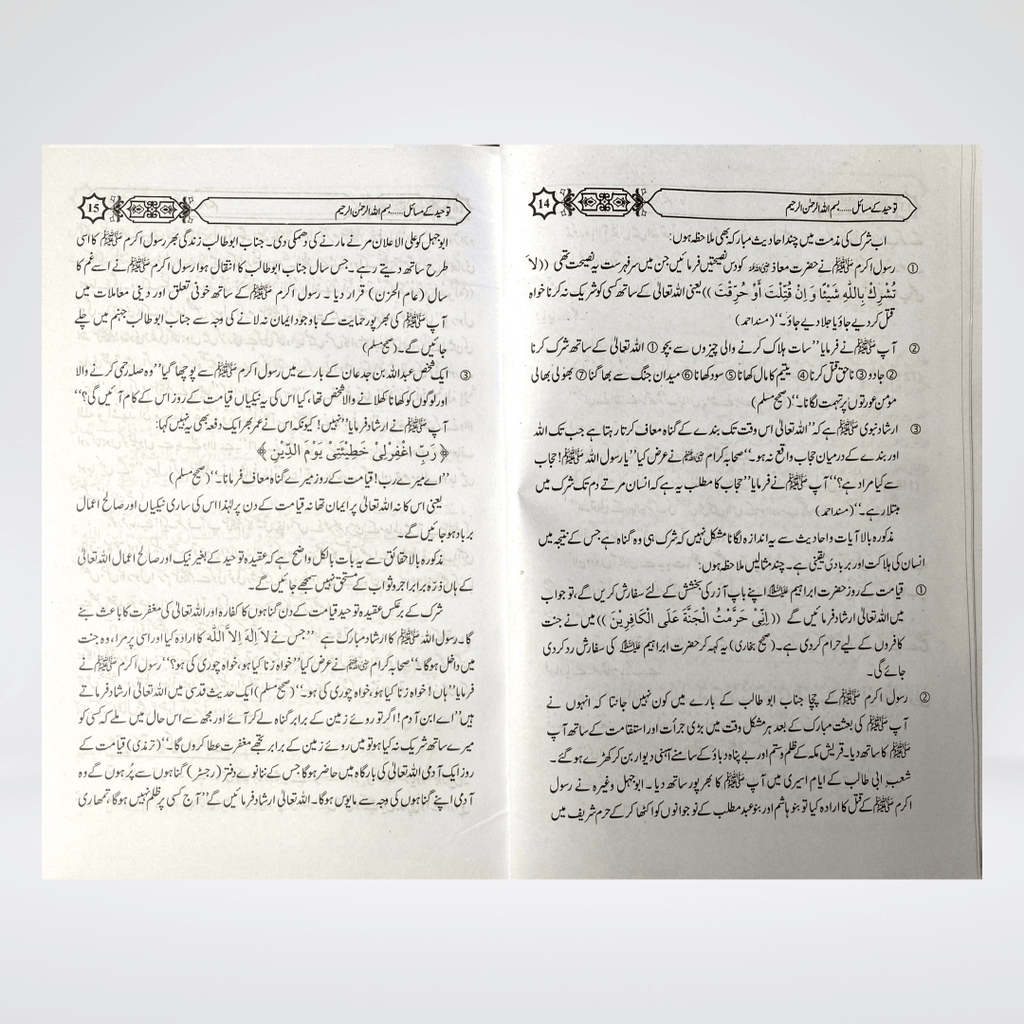 توحید کے مسائل......بسم اللہ الرحمٰن الرحیم
14
اب شرک کی مذمت میں چند احادیث مبارکہ بھی ملاحظہ ہوں:
① رسول اکرم ﷺ نے حضرت معاذ رضی اللہ عنہ کو دس نصیحتیں فرمائیں جن میں سرفہرست یہ نصیحت تھی ((لاَ
تُشْرِكْ بِاللّٰهِ شَيْئًا وَ اِنْ قُتِلْتَ أَوْ حُرِّقْتَ)) یعنی اللہ تعالیٰ کے ساتھ کسی کو شریک نہ کرنا خواہ
قتل کر دیے جاؤ یا جلا دیے جاؤ۔‘‘ (مسند احمد)
② آپ ﷺ نے فرمایا ’’سات ہلاک کرنے والی چیزوں سے بچو ① اللہ تعالیٰ کے ساتھ شرک کرنا
② جادو ③ ناحق قتل کرنا ④ یتیم کا مال کھانا ⑤ سود کھانا ⑥ میدان جنگ سے بھاگنا ⑦ بھولی بھالی
مؤمن عورتوں پر تہمت لگانا۔‘‘ (صحیح مسلم)
③ ارشاد نبوی ﷺ ہے کہ ’’اللہ تعالیٰ اس وقت تک بندے کے گناہ معاف کرتا رہتا ہے جب تک اللہ
اور بندے کے درمیان حجاب واقع نہ ہو۔‘‘ صحابہ کرام رضی اللہ عنہم نے عرض کیا ’’یا رسول اللہ ﷺ! حجاب
سے کیا مراد ہے؟‘‘ آپ ﷺ نے فرمایا ’’حجاب کا مطلب یہ ہے کہ انسان مرتے دم تک شرک میں
مبتلا رہے۔‘‘ (مسند احمد)
مذکورہ بالا آیات و احادیث سے یہ اندازہ لگانا مشکل نہیں کہ شرک ہی وہ گناہ ہے جس کے نتیجہ میں
انسان کی ہلاکت اور بربادی یقینی ہے۔ چند مثالیں ملاحظہ ہوں:
① قیامت کے روز حضرت ابراہیم علیہ السلام اپنے باپ آزر کی بخشش کے لئے سفارش کریں گے، تو جواب
میں اللہ تعالیٰ ارشاد فرمائیں گے ((اِنِّیْ حَرَّمْتُ الْجَنَّةَ عَلَى الْكَافِرِيْنَ)) میں نے جنت
کافروں کے لیے حرام کر دی ہے۔ (صحیح بخاری) یہ کہہ کر حضرت ابراہیم علیہ السلام کی سفارش رد کر دی
جائے گی۔
② رسول اکرم ﷺ کے چچا جناب ابو طالب کے بارے میں کون نہیں جانتا کہ انہوں نے
آپ ﷺ کی بعثت مبارک کے بعد ہر مشکل وقت میں بڑی جرأت اور استقامت کے ساتھ آپ
ﷺ کا ساتھ دیا۔ قریش مکہ کے ظلم و ستم اور بے پناہ دباؤ کے سامنے آہنی دیوار بن کر کھڑے ہو گئے۔
شعب ابی طالب کے ایام اسیری میں آپ ﷺ کا بھرپور ساتھ دیا۔ ابوجہل وغیرہ نے رسول
اکرم ﷺ کے قتل کا ارادہ کیا تو بنو ہاشم اور بنو عبد مطلب کے نوجوانوں کو اکٹھا کر کے حرم شریف میں
توحید کے مسائل......بسم اللہ الرحمٰن الرحیم
15
ابوجہل کو علی الاعلان مرنے مارنے کی دھمکی دی۔ جناب ابو طالب زندگی بھر رسول اکرم ﷺ کا اسی
طرح ساتھ دیتے رہے۔ جس سال جناب ابو طالب کا انتقال ہوا رسول اکرم ﷺ نے اسے غم کا
سال (عام الحزن) قرار دیا۔ رسول اکرم ﷺ کے ساتھ خونی تعلق اور دینی معاملات میں
آپ ﷺ کی بھرپور حمایت کے باوجود ایمان نہ لانے کی وجہ سے جناب ابو طالب جہنم میں چلے
جائیں گے۔ (صحیح مسلم)
③ ایک شخص عبداللہ بن جدعان کے بارے میں رسول اکرم ﷺ سے پوچھا گیا ’’وہ صلہ رحمی کرنے والا
اور لوگوں کو کھانا کھلانے والا شخص تھا، کیا اس کی یہ نیکیاں قیامت کے روز اس کے کام آئیں گی؟‘‘
آپ ﷺ نے ارشاد فرمایا ’’نہیں! کیونکہ اس نے عمر بھر ایک دفعہ بھی یہ نہیں کہا:
﴿ رَبِّ اغْفِرْلِیْ خَطِیْئَتِیْ یَوْمَ الدِّیْنِ ﴾
’’اے میرے رب! قیامت کے روز میرے گناہ معاف فرمانا۔‘‘ (صحیح مسلم)
یعنی اس کا نہ اللہ تعالیٰ پر ایمان تھا نہ قیامت کے دن پر لہٰذا اس کی ساری نیکیاں اور صالح اعمال
برباد ہو جائیں گے۔
مذکورہ بالا حقائق سے یہ بات بالکل واضح ہے کہ عقیدہ توحید کے بغیر نیک اور صالح اعمال اللہ تعالیٰ
کے ہاں ذرہ برابر اجر و ثواب کے مستحق نہیں سمجھے جائیں گے۔
شرک کے برعکس عقیدہ توحید قیامت کے دن گناہوں کا کفارہ اور اللہ تعالیٰ کی مغفرت کا باعث بنے
گا۔ رسول اللہ ﷺ کا ارشاد مبارک ہے ’’جس نے لاَ اِلٰهَ اِلاَّ اللّٰه کا ارادہ کیا اور اسی پر مرا، وہ جنت
میں داخل ہوگا۔‘‘ صحابہ کرام رضی اللہ عنہم نے عرض کیا ’’خواہ زنا کیا ہو، خواہ چوری کی ہو؟‘‘ رسول اکرم ﷺ نے
فرمایا ’’ہاں! خواہ زنا کیا ہو، خواہ چوری کی ہو۔‘‘ (صحیح مسلم) ایک حدیث قدسی میں اللہ تعالیٰ ارشاد فرماتے
ہیں ’’اے ابن آدم! اگر تو روئے زمین کے برابر گناہ لے کر آئے اور مجھ سے اس حال میں ملے کہ کسی کو
میرے ساتھ شریک نہ کیا ہو تو میں روئے زمین کے برابر تجھے مغفرت عطا کروں گا۔‘‘ (ترمذی) قیامت کے
روز ایک آدمی اللہ تعالیٰ کی بارگاہ میں حاضر ہوگا جس کے ننانوے دفتر (رجسٹر) گناہوں سے پُر ہوں گے وہ
آدمی اپنے گناہوں کی وجہ سے مایوس ہوگا۔ اللہ تعالیٰ ارشاد فرمائیں گے ’’آج کسی پر ظلم نہیں ہوگا، تمہاری